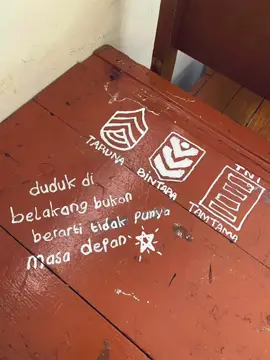 TARUNA
BINTARA
TNI
TAMTAMA
duduk di
belakang bukan
berarti tidak punya
masa depan